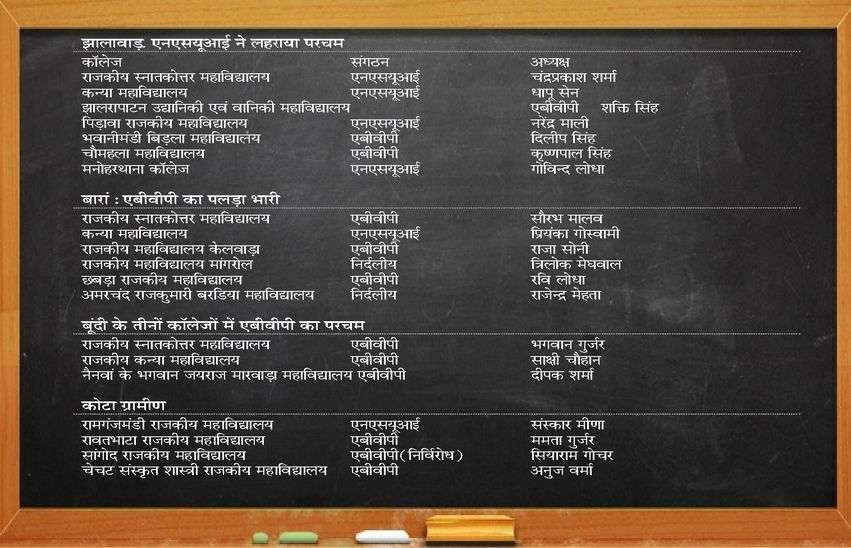 झालावाड़. एनएसयूआई ने लहराया परचम
कॉलेज संगठन अध्यक्ष
राजकीय स्नातकोत्तर महाविद्यालय एनएसयूआई चंद्रप्रकाश शर्मा
कन्या महाविद्यालय एनएसयूआई धापू सेन
झालरापाटन उद्यानिकी एवं वानिकी महाविद्यालय एबीवीपी शक्ति सिंह
पिड़ावा राजकीय महाविद्यालय एनएसयूआई नरेंद्र माली
भवानीमंडी बिड़ला महाविद्यालय एबीवीपी दिलीप सिंह
चौमहला महाविद्यालय एबीवीपी कृष्णपाल सिंह
मनोहरथाना कॉलेज एनएसयूआई गोविन्द लोधा
बारां : एबीवीपी का पलड़ा भारी
राजकीय स्नातकोत्तर महाविद्यालय एबीवीपी सौरभ मालव
कन्या महाविद्यालय एनएसयूआई प्रियंका गोस्वामी
राजकीय महाविद्यालय केलवाड़ा एबीवीपी राजा सोनी
राजकीय महाविद्यालय मांगरोल निर्दलीय त्रिलोक मेघवाल
छबड़ा राजकीय महाविद्यालय एबीवीपी रवि लोधा
अमरचंद राजकुमारी बरडिया महाविद्यालय निर्दलीय राजेन्द्र मेहता
बूंदी के तीनों कॉलेजों में एबीवीपी का परचम
राजकीय स्नातकोत्तर महाविद्यालय एबीवीपी भगवान गुर्जर
राजकीय कन्या महाविद्यालय एबीवीपी साक्षी चौहान
नैनवां के भगवान जयराज मारवाड़ा महाविद्यालय एबीवीपी दीपक शर्मा
कोटा ग्रामीण
रामगंजमंडी राजकीय महाविद्यालय एनएसयूआई संस्कार मीणा
रावतभाटा राजकीय महाविद्यालय एबीवीपी ममता गुर्जर
सांगोद राजकीय महाविद्यालय एबीवीपी(निर्विरोध) सियाराम गोचर
चेचट संस्कृत शास्त्री राजकीय महाविद्यालय एबीवीपी अनुज वर्मा